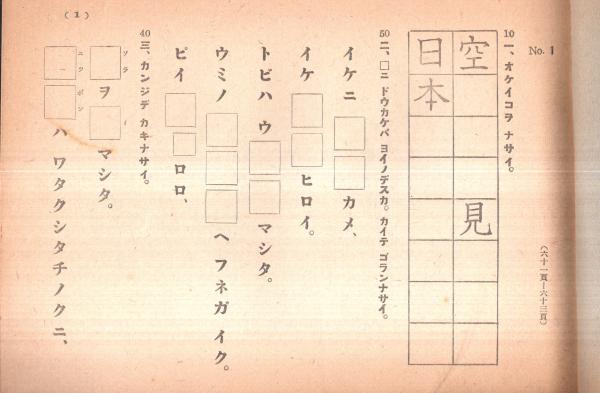 No. 1
(六十一頁—六十三頁)
10一、オケイコヲ ナサイ。
空 見
日本
50二、□ニ ドウカケバ ヨイノデスカ。カイテ ゴランナサイ。
イケニ□□カメ、
イケ□□ヒロイ。
トビハ ウ□□マシタ。
ウミノ□□□ヘ フネガ イク。
ピイ□□ロロ、
40三、カンジデ カキナサイ。
□ヲ□マシタ。
ソラ
ミ
□□ハ ワタクシタチノクニ、
ニツポン
(1)